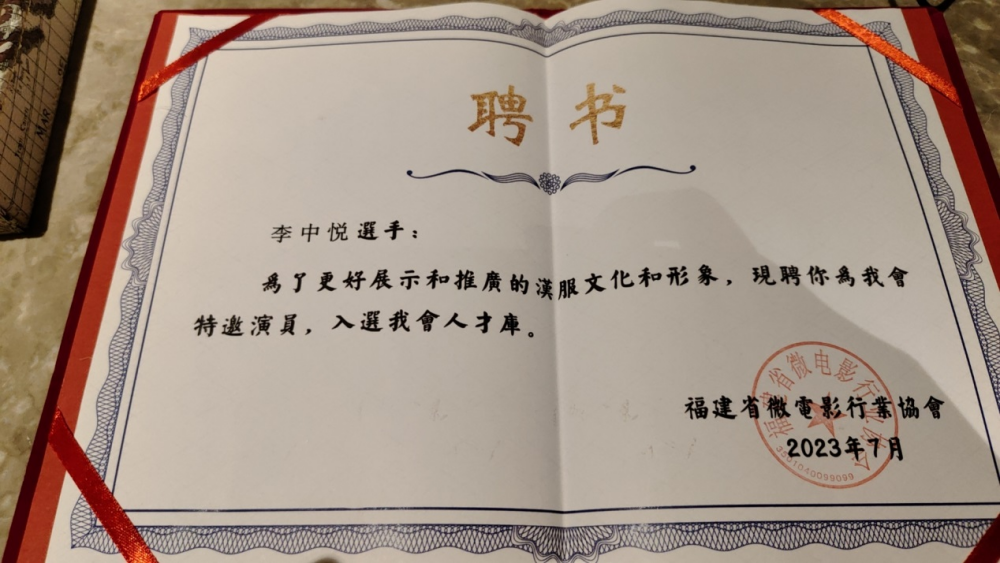 聘书
李中悦選手：
為了更好展示和推廣的漢服文化和形象，現聘你為我會
特邀演員，入選我會人才庫。
福建省微電影行業協會
2023年7月
福建省微电影行业协会
3501040099099
MAR